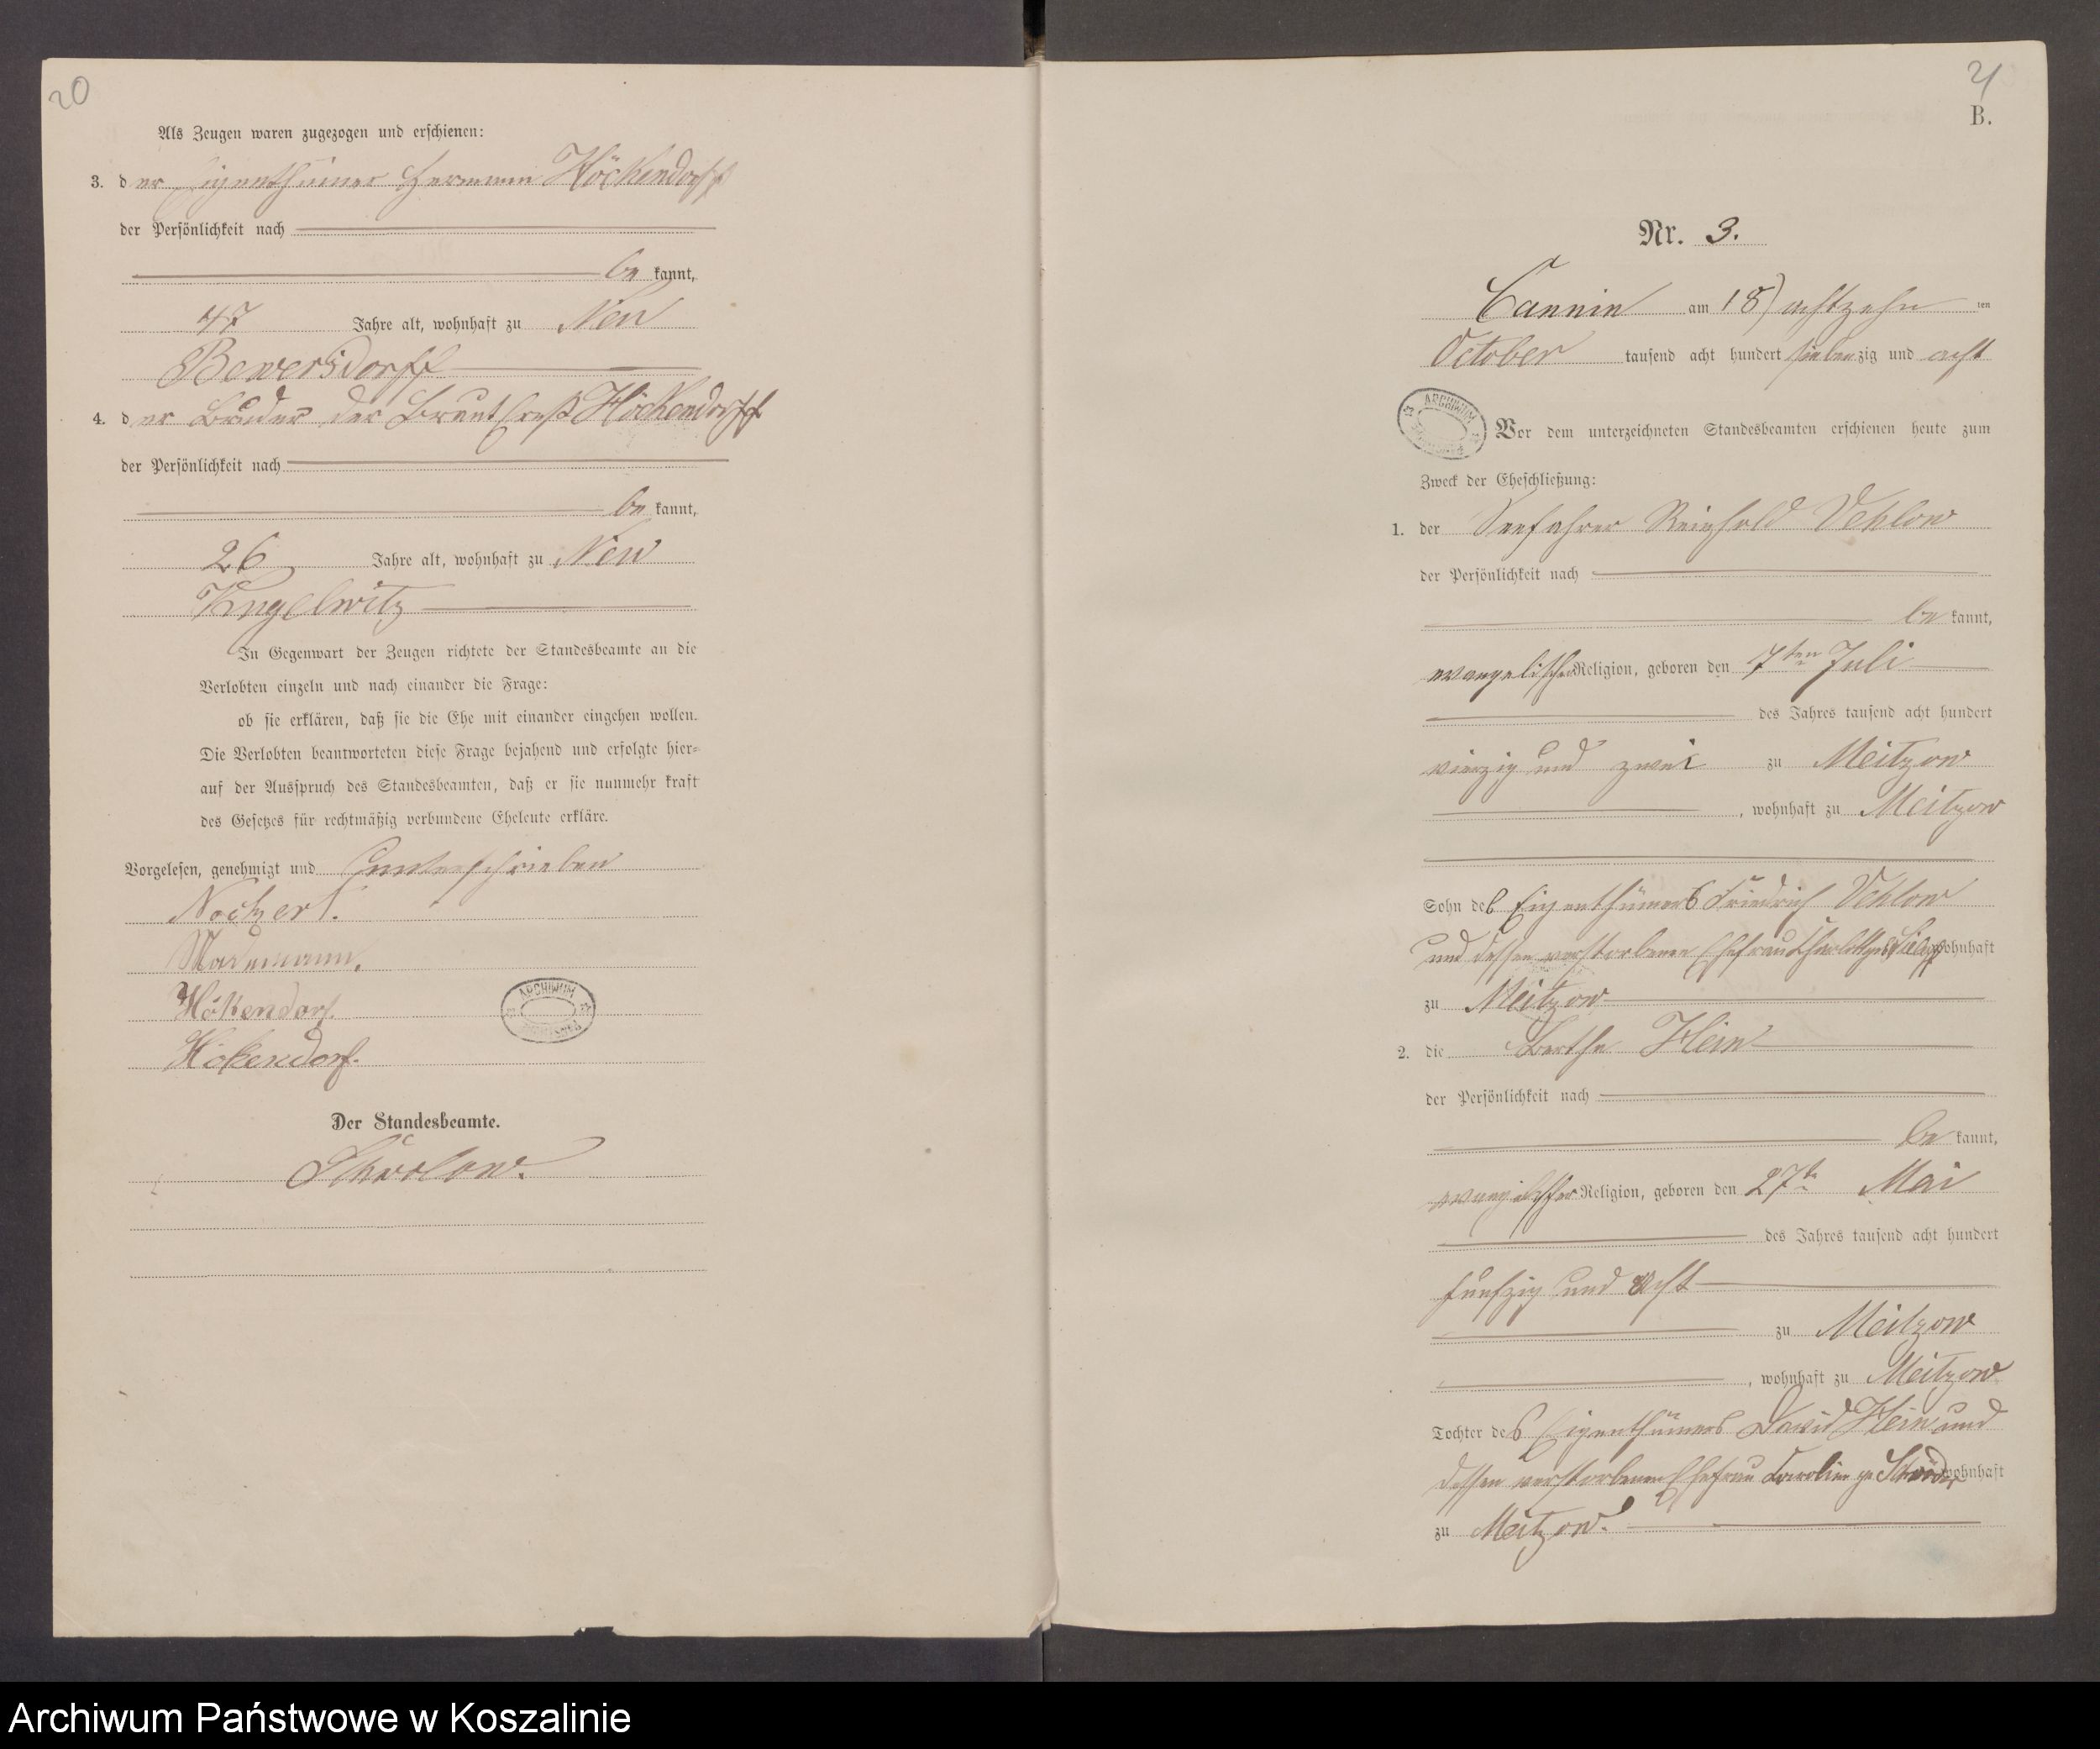 20
Als Zeugen waren zugezogen und erschienen:
3. der Eigenthümer Hermann Höckendorff
der Persönlichkeit nach
be kannt,
47 Jahre alt, wohnhaft zu Neu
Bewersdorff
4. der Bruder der Braut Höckendorff
der Persönlichkeit nach
be kannt,
26 Jahre alt, wohnhaft zu Neu
Kugelwitz
In Gegenwart der Zeugen richtete der Standesbeamte an die
Verlobten einzeln und nach einander die Frage:
ob sie erklären, daß sie die Ehe mit einander eingehen wollen.
Die Verlobten beantworteten diese Frage bejahend und erfolgte hier=
auf der Ausspruch des Standesbeamten, daß er sie nunmehr kraft
des Gesetzes für rechtmäßig verbundene Eheleute erkläre.
Vorgelesen, genehmigt und unterschrieben
Hökendorf.
Hökendorf.
ARCHIWUM
Der Standesbeamte.
21
B.
Nr. 3.
Cannin am 18) achtzehn ten
October tausend acht hundert siebenzig und acht
ARCHIWUM
Vor dem unterzeichneten Standesbeamten erschienen heute zum
Zweck der Eheschließung:
1. der Seefahrer Reinhold Vehlow
der Persönlichkeit nach
be kannt,
evangelischer Religion, geboren den 7ten Juli
des Jahres tausend acht hundert
vierzig und zwei zu Meitzow
, wohnhaft zu Meitzow
Sohn des Eigenthümers Friedrich Vehlow
und dessen verstorbenen Ehefrau wohnhaft
zu Meitzow
2. die Berthe Klein
der Persönlichkeit nach
be kannt,
evangelischer Religion, geboren den 27te Mai
des Jahres tausend acht hundert
funfzig und acht
zu Meitzow
, wohnhaft zu Meitzow
Tochter des Eigenthümers David Klein und
dessen verstorbenen Ehefrau Caroline ge Schröder wohnhaft
zu Meitzow.
Archiwum Państwowe w Koszalinie